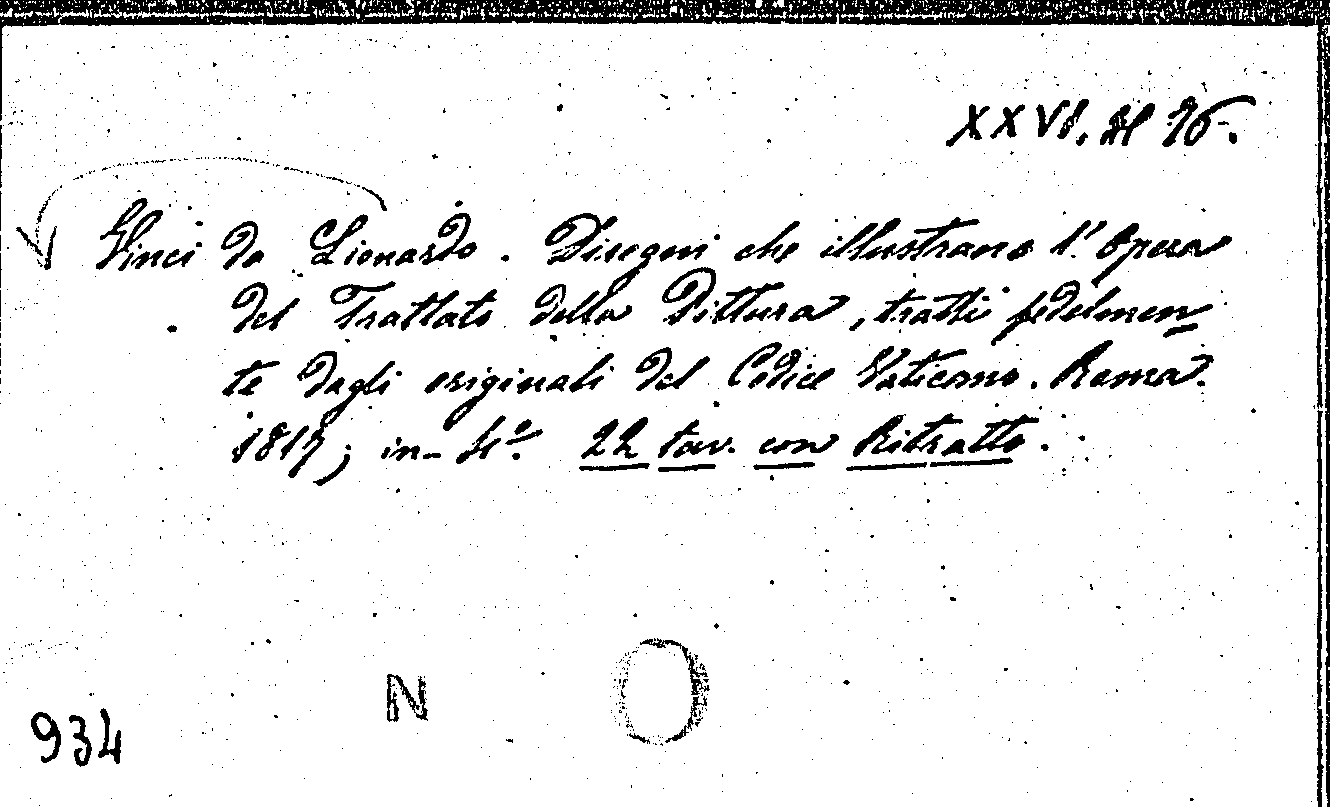 XXVI. M 76.
Vinci da Lionardo. Disegni che illustrano l'Opera
del Trattato della Pittura, tratti fedelmen
te dagli originali del Codice Vaticano. Roma.
1817; in-4º. 22 tav. con Ritratto.
N
934